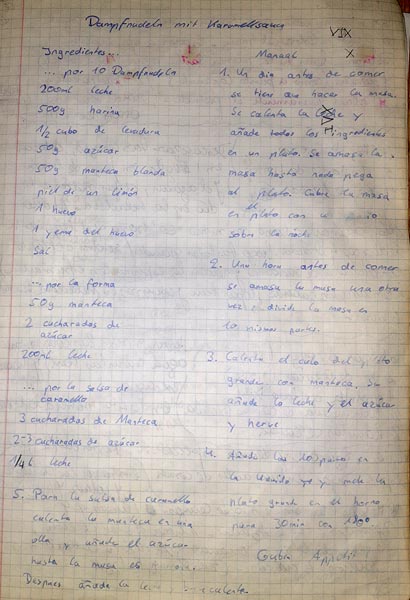 Dampfnudeln mit Karamellsauce
Ingredientes...
... por 10 Dampfnudeln
200ml leche
500g harina
1/2 cubo de levadura
50g azúcar
50g manteca blanda
piel de un limón
1 huevo
1 yema del huevo
Sal
... por la forma
50g manteca
2 cucharadas de
azúcar
200ml leche
... por la salsa de
caramello
3 cucharadas de Manteca
2-3 cucharadas de azúcar
1/4 l leche
Manual
1. Un dia antes de comer
se tiene que hacer la masa.
Se calienta la leche y
añade todos los ingredientes
en un plato. Se amasa la
masa hasta nada pega
al plato. Cubre la masa
en el plato con un
sobre la noche
2. Una hora antes de comer
se amasa la masa una otra
vez y divide la masa en
10 mismas partes.
3. Calienta el culo del plato
grande con manteca, se
añade la leche y el azúcar
y herve
4. Añade las 10 partes en
la y mete la
plato grande en el horno
para 30min con 180°
Guten Appetit!
5. Para la salsa de caramello
calenta la manteca en una
olla y añade el azúcar
hasta la masa es
Despues añade la leche calenta